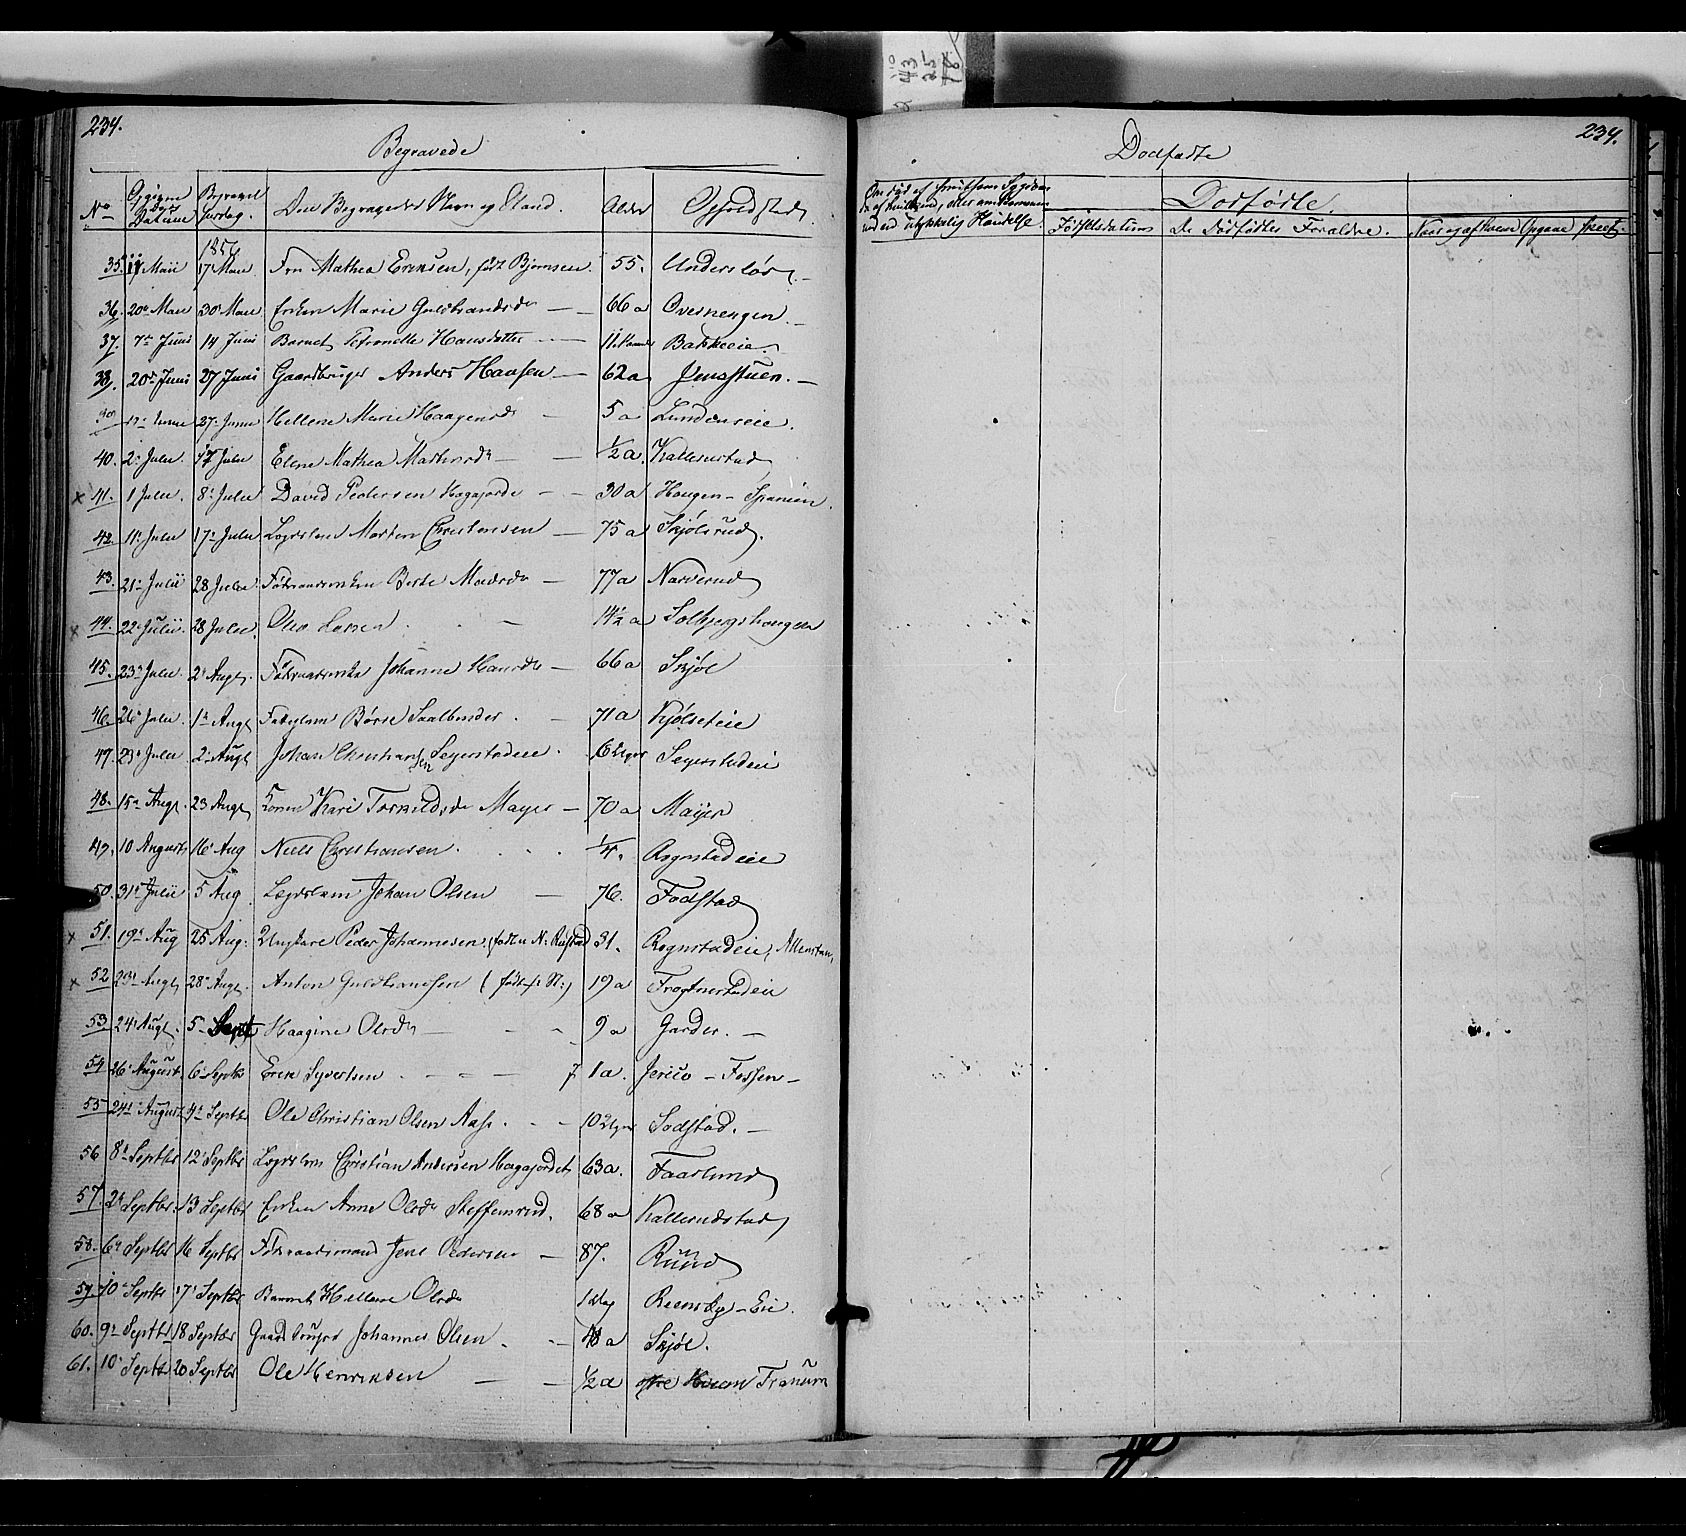 234.
Begravede
No Dødsdatum Begravelsesdag. Den Begravedes Navn og Stand. Alder Opholdsted
1856
35. 11 Maii 17 Maii Fru Mathea Eriksen, født Bjørnsen. 55.
36. 20de Maii 30 Maii Enken Marie Guldbrandsdr — 66 a Overnengen
37. 7de Junii 14 Junii Barnet Petronelle Hansdatter — 11 Bakkeeie
38. 20de Junii 27 Junii Gaardbruger Anders Hansen — 62 a Jensstuen. —
39 27. Junii Hellene Marie Haagensdr — 5 a Lundenseie.
40. 2. Julii 17 Julii Elene Mathea Mathisdr — ½ a. Kallerustad
x 41. 1 Julii. 8. Julii David Pedersen Hagajorde — 30 a Haugen – Spanien.
42. 11. Julii 17. Julii Lægdslem Morten Christensen — 75 a Skjølsrud.
43. 21. Julii 28 Julii Føderaadsenken Berte Madsdr — 77 a Narverud
x 44. 22. Julii. 28 Julii. Olea Larsen — 14½ a Solbjergshaugen
45. 23. Julii. 2. Augt. Føderaadsenke Johanne Hansdr — 66 a Skjøl
46. 26 Julii. 1. Augt Fattiglem Børre Saalbinder. — 71 a Kjølseteie
47. 29. Julii 2. Augt Johan Christiansen Segerstadeie. 6 Uger Segerstadeie
48. 15. Augt. 23 Augt Konen Kari Torkildsdr Mayer — 70 a Mayer
49. 10 August 16 Aug Niels Christiansen. ¼. Rognstadeie
50. 31 Julii 5 Aug Lægdslem Johan Olsen — 76. Fodstad
x 51. 19. Aug 25 Aug. Ungkarl Peder Johannesen, (født u N. Rustad 31. Rognstadeie,
x 52 23. Augt 28. Augt. Anton Guldbrandsen 19 a Frognstadeie
53. 24. Augt. 5. Sept Haagine Olsdr — 9 a Garder. —
54 26. August. 6. Septbr Erik Syvertsen — 1 a. Jerico – Fossen –
55 24. August 4. Septbr Ole Christian Olsen Aas. — 10 Uger Sodstad. —
56 8. Septbr 12. Septbr Lægdslem Christian Andersen Hagajordet 63 a. Faarlund
57. 2. Septbr. 13 Septbr Enken Anne Olsdr Steffensrud. 68 a Kallerudstad
58. 6. Septbr 16 Septbr Føderaadsmand Jens Pedersen — 87. Ruud
59. 10. Septbr 17. Septbr Barnet Hellene Olsdr 1 Dag Reensby – Eie.
60. 9. Septbr 18 Septbr Gaardbruger Johannes Olsen. — 41 a Skjøl.
61. 10. Septbr 20 Septbr Ole Henriksen — ½ a Franum
234.
Dødfødte
Om død af smitsom Sygdom
ved ulykkelig Hændelse. Fødselsdatum
Dødfødte.
De Dødfødtes Forældre. Naar og af hvem Opgave skeet.